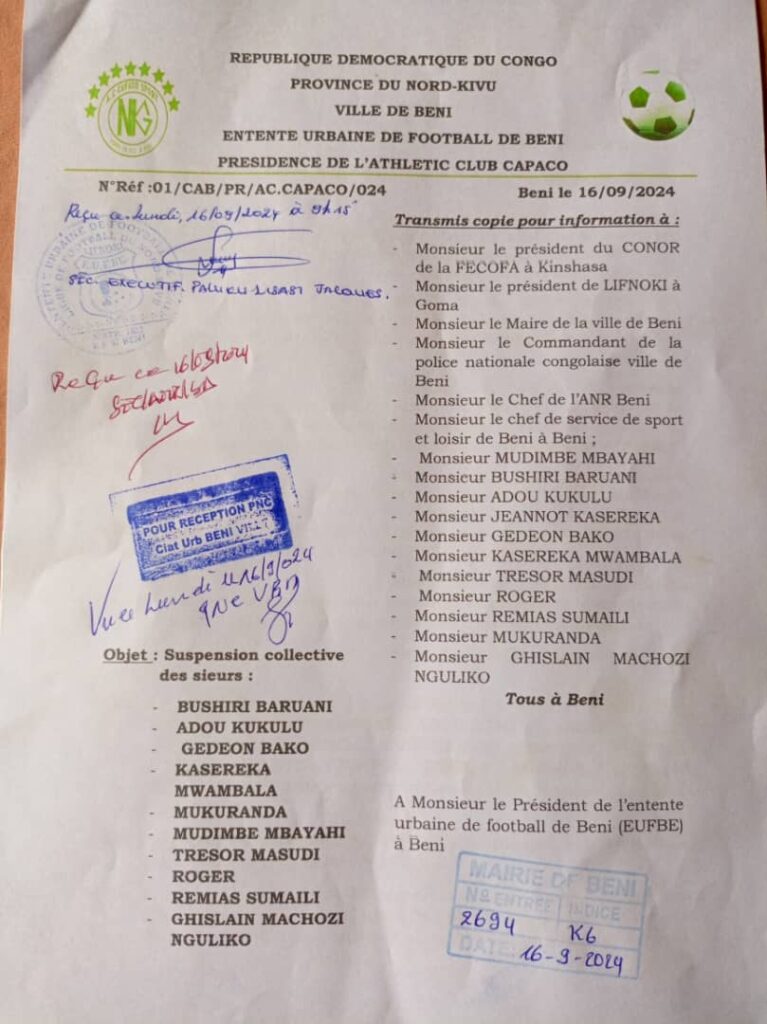 REPUBLIQUE DEMOCRATIQUE DU CONGO
PROVINCE DU NORD-KIVU
VILLE DE BENI
ENTENTE URBAINE DE FOOTBALL DE BENI
PRESIDENCE DE L'ATHLETIC CLUB CAPACO
NKG
N°Réf :01/CAB/PR/AC.CAPACO/024
Beni le 16/09/2024
Reçu ce lundi, 16/09/2024 à 9h15'
SEC. EXECUTIF. PALUKU LISASI JACQUES.
Reçu ce 16/09/2024
POUR RECEPTION PNC
Ciat Urb BENI VILLE
Vu ce Lundi le 16/9/024
Objet : Suspension collective
des sieurs :
- BUSHIRI BARUANI
- ADOU KUKULU
- GEDEON BAKO
- KASEREKA
MWAMBALA
- MUKURANDA
- MUDIMBE MBAYAHI
- TRESOR MASUDI
- ROGER
- REMIAS SUMAILI
- GHISLAIN MACHOZI
NGULIKO
Transmis copie pour information à :
- Monsieur le président du CONOR
de la FECOFA à Kinshasa
- Monsieur le président de LIFNOKI à
Goma
- Monsieur le Maire de la ville de Beni
- Monsieur le Commandant de la
police nationale congolaise ville de
Beni
- Monsieur le Chef de l'ANR Beni
- Monsieur le chef de service de sport
et loisir de Beni à Beni ;
- Monsieur MUDIMBE MBAYAHI
- Monsieur BUSHIRI BARUANI
- Monsieur ADOU KUKULU
- Monsieur JEANNOT KASEREKA
- Monsieur GEDEON BAKO
- Monsieur KASEREKA MWAMBALA
- Monsieur TRESOR MASUDI
- Monsieur ROGER
- Monsieur REMIAS SUMAILI
- Monsieur MUKURANDA
- Monsieur GHISLAIN MACHOZI
NGULIKO
Tous à Beni
A Monsieur le Président de l'entente
urbaine de football de Beni (EUFBE)
à Beni
MAIRIE DE BENI
N° ENTREE INDICE
2694 K6
DATE: 16-9-2024